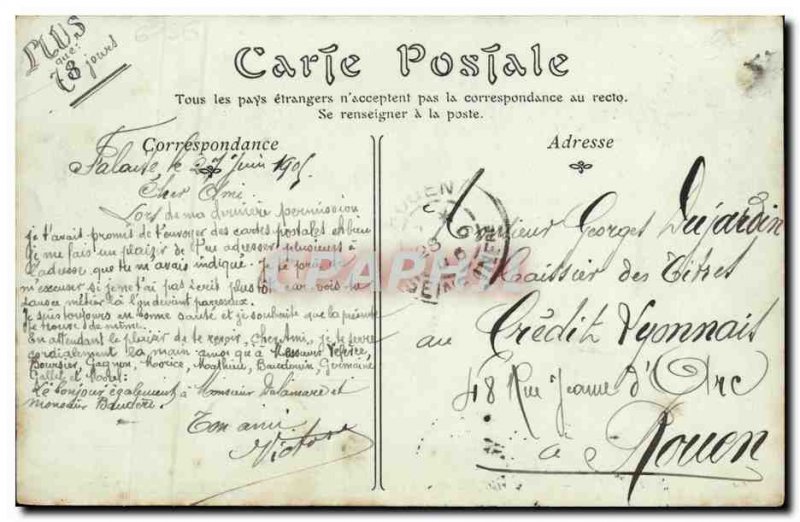 PLUS
que:
78 jours
Carte Postale
Tous les pays étrangers n'acceptent pas la correspondance au recto.
Se renseigner à la poste.
Correspondance
Falaise le 27 Juin 1905
Cher Ami.
Lors de ma dernière permission
je t'avait promis de t'envoyer des cartes postales eh bien
je me fais un plaisir de t'en adresser plusieurs à
l'adresse que tu m'avais indiqué. Je te prierai
m'excuser si je ne t'ai pas écrit plus tôt car vois-tu
dans ce métier là l'on devient paresseux.
Je suis toujours en bonne santé et je souhaite que la présente
te trouve de même.
En attendant le plaisir de te revoir, Cher Ami, je te serre
cordialement la main ainsi qu'à Messieurs Lefevre,
Boursier, Gagnon, Morice, Mathieu, Baudouin, Germaine
Gallet et
Le bonjour également à Monsieur Delamare et
monsieur
Ton ami
Victor
Adresse
Monsieur Georges Dujardin
Caissier des Titres
au Crédit Lyonnais
48 Rue Jeanne d'Arc
à Rouen
ROUEN
SEINE INFRE
CPARAMA